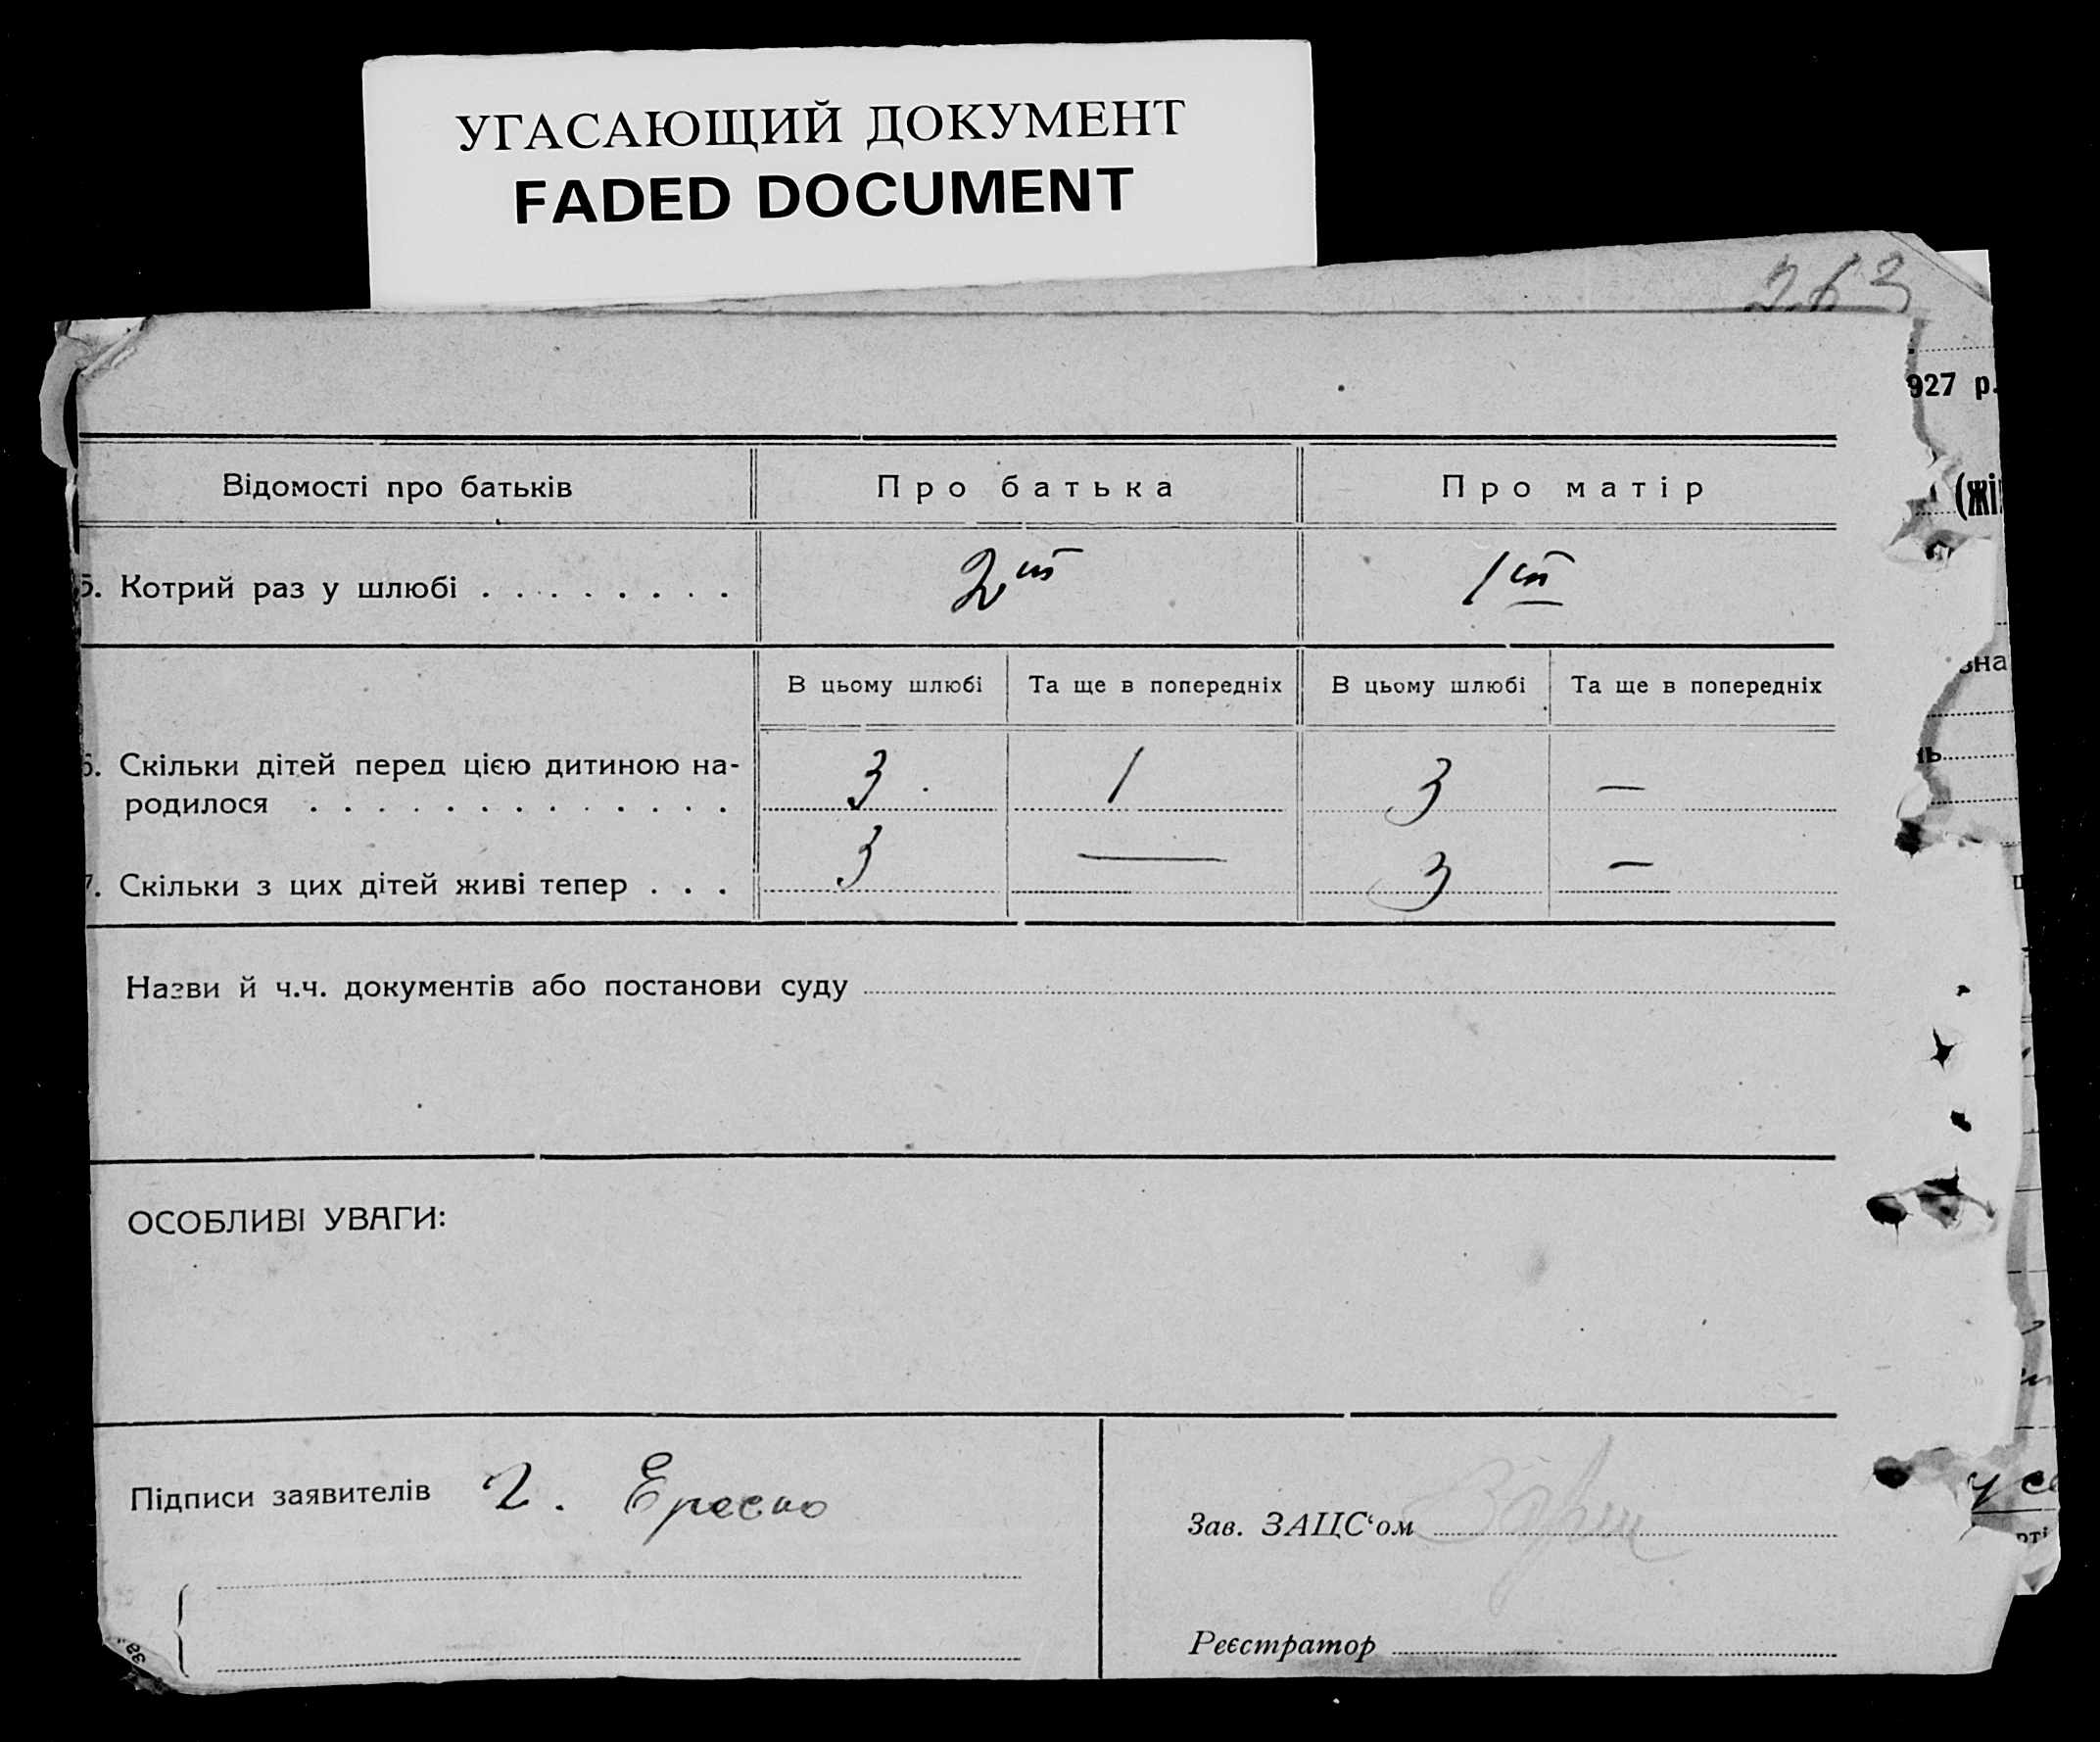 УГАСАЮЩИЙ ДОКУМЕНТ
FADED DOCUMENT
263
927 р.
Відомості про батьків Про батька Про матір
(жі
5. Котрий раз у шлюбі . . . . . . . . 2й 1й
В цьому шлюбі Та ще в попередніх В цьому шлюбі Та ще в попередніх
6. Скільки дітей перед цією дитиною на-
родилося . . . . . . . . . . . . . 3 1 3 —
7. Скільки з цих дітей живі тепер . . . 3 — 3 —
Назви й ч.ч. документів або постанови суду
ОСОБЛИВІ УВАГИ:
Підписи заявителів
Зав. ЗАЦС‘ом
Реєстратор